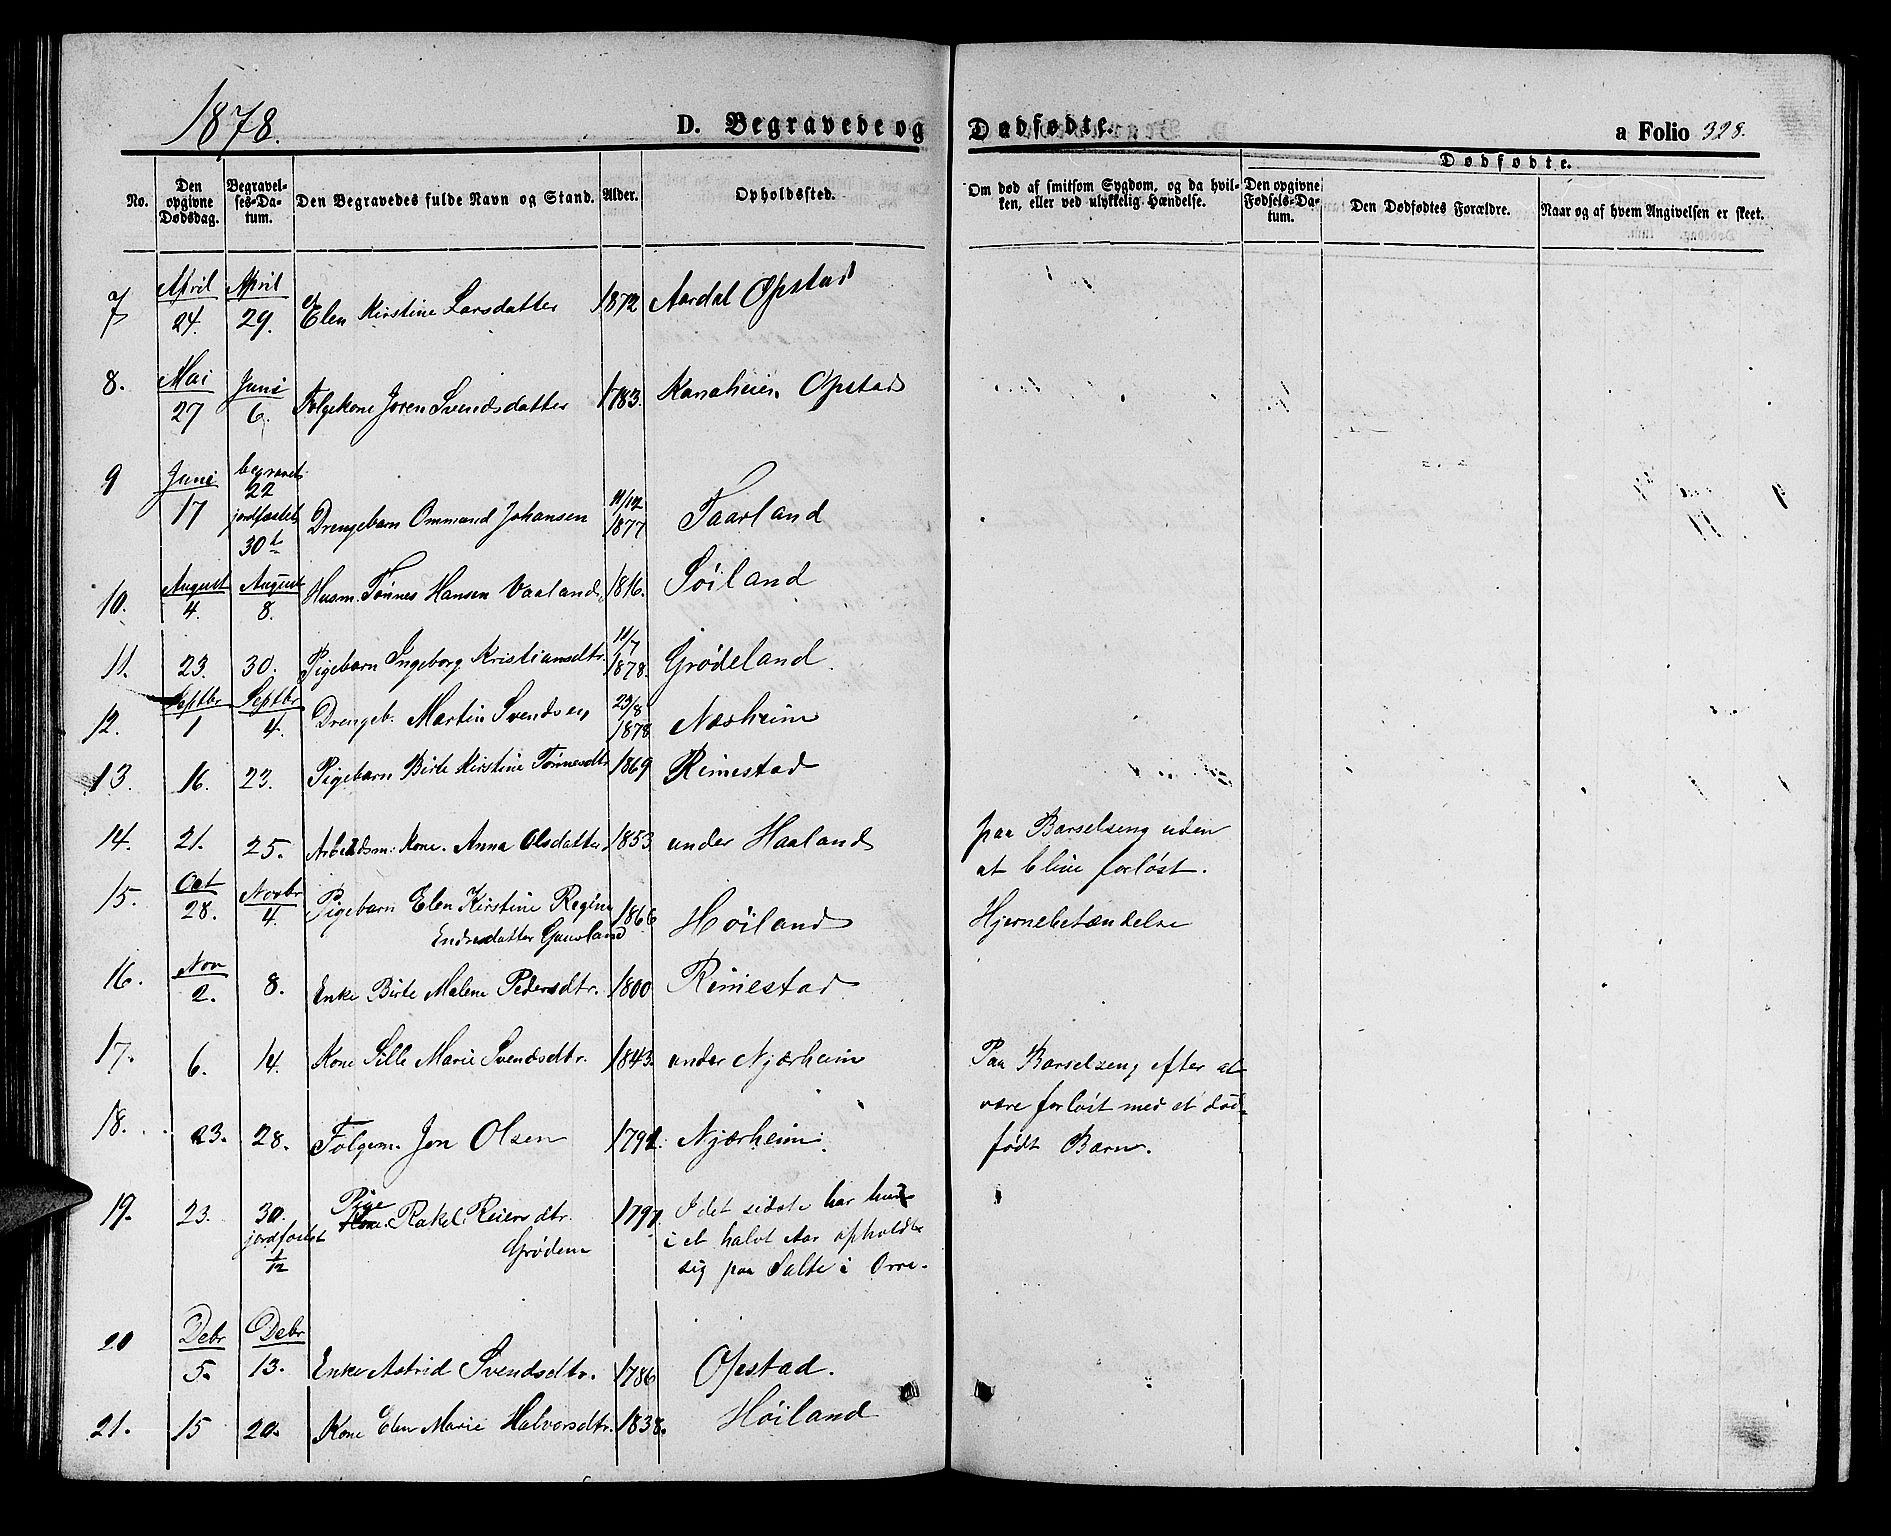 1878.
D. Begravede og Dødfødte.
a Folio 328.
No.
Den opgivne Dødsdag.
Begravelses-Datum.
Den Begravedes fulde Navn og Stand.
Alder.
Opholdssted.
Om død af smitsom Sygdom, og da hvilken, eller ved ulykkelig Hændelse.
Dødfødte.
Den opgivne Fødsels-Datum.
Den Dødfødtes Forældre.
Naar og af hvem Angivelsen er skeet.
7 April 24. April 29. Elen Kirstine Larsdatter 1872 Aardal Opstad
8. Mai 27 Juni 6. Folgekone Joren Svendsdatter 1783. Kanaheien Opstad
9 Juni 17 begravet 22 jordfæstet 30t Drengebarn Ommund Johansen 11/12 1877 Taarland
10. August 4. August 8. Husm. Tønnes Hansen Vaaland 1816. Søiland
11. 23. 30. Pigebarn Ingeborg Kristiansdtr. 11/7 1878. Grødeland.
12. Septbr 1 Septbr 4. Drengeb. Martin Svendsen 23/8 1878 Næsheim
13. 16. 23. Pigebarn Birte Kirstine Tønnesdtr 1869 Rimestad
14. 21. 25. Arbeidsm. Kone. Anna Olsdatter 1853 under Haaland paa Barselseng uden
at blive forløst.
15. Oct 28. Novbr 4. Pigebarn Elen Kirstine Regine 1866 Høiland Hjernebetændelse
Endresdatter Gausland
16. Nov 2. 8. Enke Birte Malene Pedersdtr. 1800 Rimestad
17. 6. 14. Kone Sille Marie Svendsdtr. 1843. under Njærheim Paa Barselseng efter at
være forløst med et død-
født Barn.
18. 23. 28. Folgem. Jon Olsen 1791. Njærheim.
19. 23. 30. jordfæstet 1/12 Pige Kone Rakel Reiersdtr. 1797. I det sidste har hun
Grødem i et halvt Aar opholdt
sig paa Salte i Orre.
20 Debr 5. Debr 13. Enke Astrid Svendsdtr. 1786 Opstad.
21. 15 20. Kone Elen Marie Halvorsdtr. 1838. Høiland